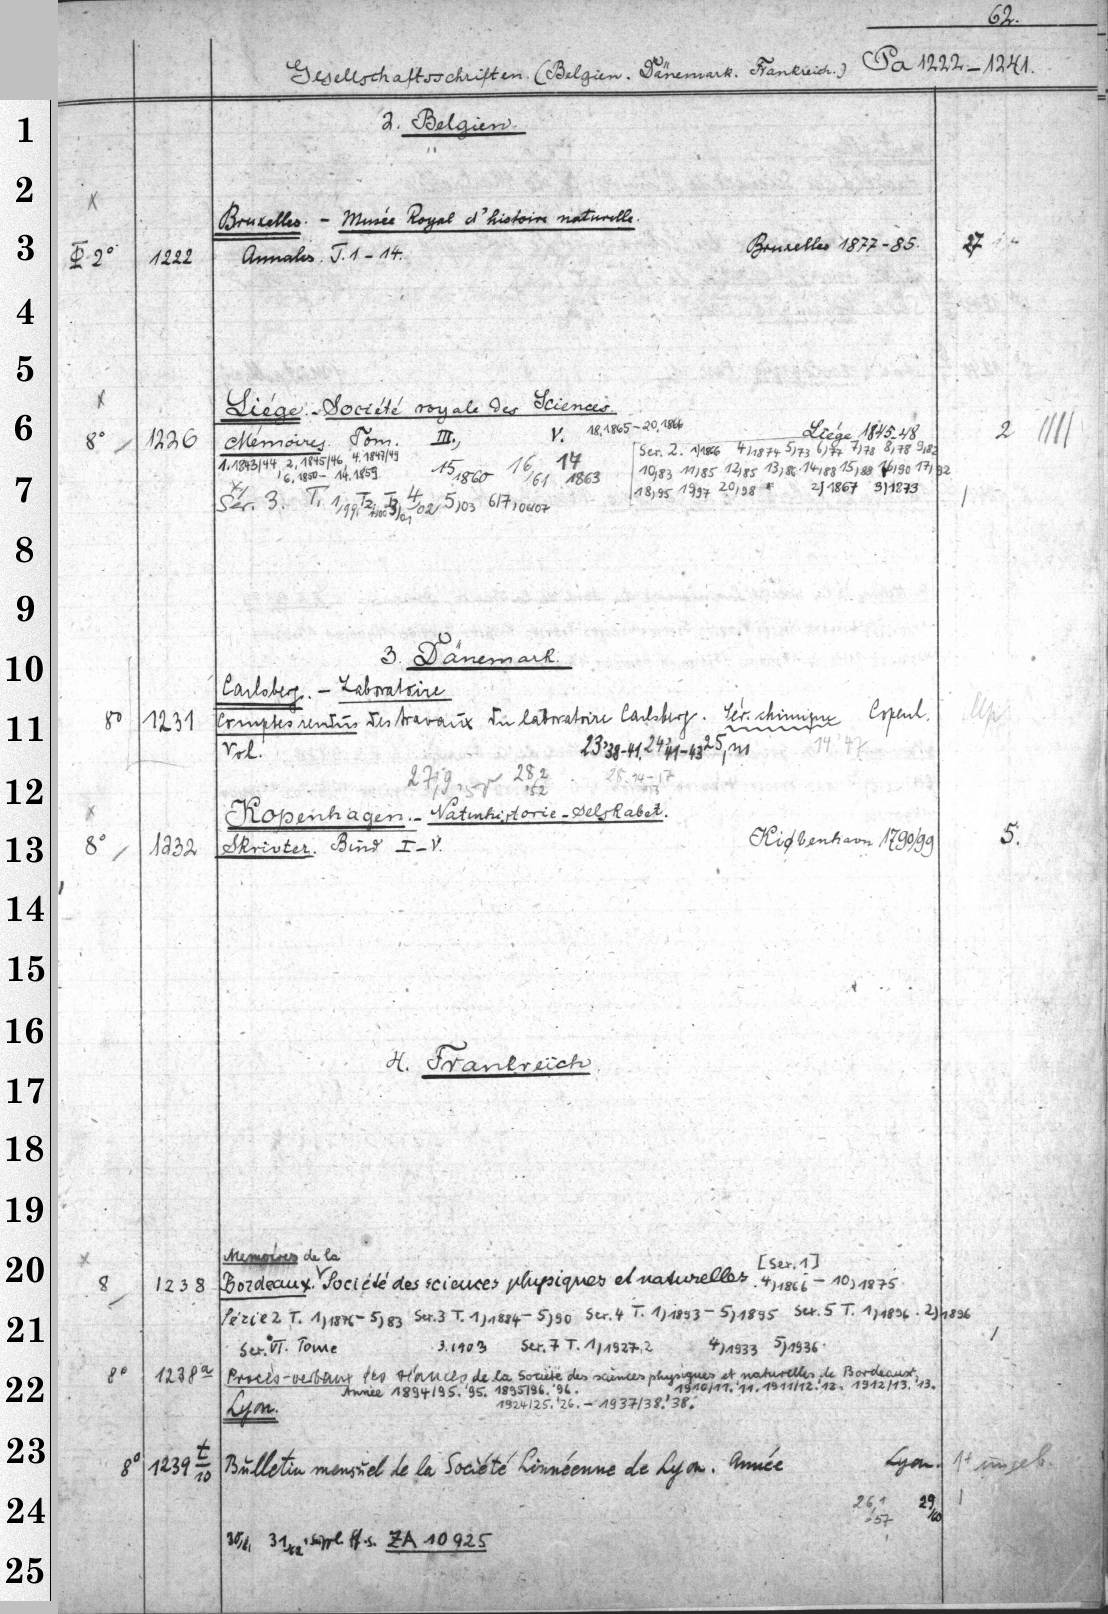 62.
Gesellschaftsschriften. (Belgien. Dänemark. Frankreich.) Pa 1222-1241.
1
2. Belgien.
2
Bruxelles. - Musée Royal d'histoire naturelle.
3 2° 1222 Annales. T. 1-14. Bruxelles 1877-85. 27
4
5
Liége. - Société royale des Sciences
6 8° 1226 Mémoires. Tom. III., V. 18,1865-20,1866 Liége 1845-48 2
1.1843/44, 2,1845/46, 4.1847/49 15 1860 16/61 17 1863 Ser. 2. 1)1866 4)1874 5,73 6,77 7,78 8,78 9,82
6,1850- 14.1859 10,83 11,85 12,85 13,86 14,88 15,88 16,90 17,92
7 Ser. 3. T. 1,99. T. 2, T. 3,01 4/02 5,03 6/7,06/07 18,95 19,97 20,98 * 2)1867 3)1873
8
9
10 3. Dänemark.
Carlsberg. - Laboratoire
11 8° 1231 Comptes rendus des travaux du laboratoire Carlsberg. Sér. chimique Copenh.
Vol. 23'38-41, 24'41-43 25, 14 '47
12 28,2 '52
Kopenhagen. - Naturhistorie-Selskabet.
13 8° 1232 Skrivter. Bind I-V. Kiøbenhavn 1790/99 5.
14
15
16
4. Frankreich
17
18
19
Memoires de la
20 8 1238 Bordeaux. Société des sciences physiques et naturelles [Ser. 1] 4,1866 - 10)1875
21 Série 2 T. 1)1876-5)83 Ser. 3 T. 1)1884-5)90 Ser. 4 T. 1)1893-5)1895 Ser. 5 T. 1)1896. 2)1896
Ser. VI. Tome 3.1903 Ser. 7 T. 1)1927,2 4)1933 5)1936
22 8° 1238a Procès-verbaux des séances de la Société des sciences physiques et naturelles de Bordeaux,
Année 1894/95. '95. 1895/96. '96. 1910/11. '11. 1911/12. '12. 1912/13. '13.
Lyon. 1924/25. '26. - 1937/38. '38.
23 8° 1239 t/10 Bulletin mensuel de la Société Linnéenne de Lyon. Année Lyon. 1+ ungeb.
24 26,1 '57 29/60
30/61 31/62 suppl. ff. s. ZA 10925
25